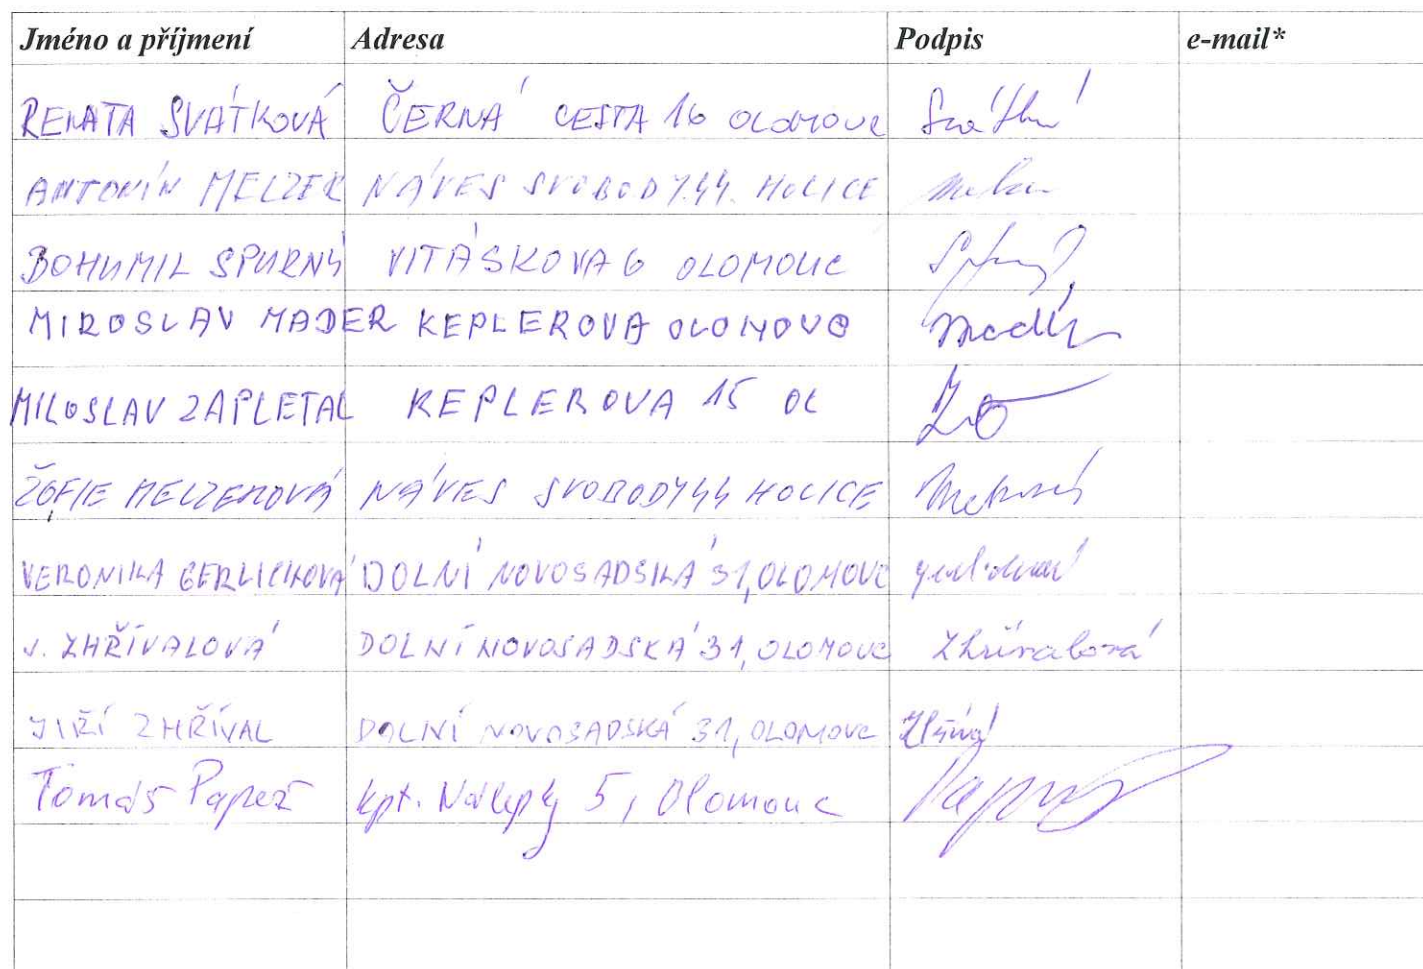 Jméno a příjmení Adresa Podpis e-mail*
RENATA SVÁTKOVÁ ČERNÁ CESTA 16 OLOMOUC
ANTONÍN MELZER NÁVES SVOBODY 44. HOLICE
BOHUMIL SPURNÝ VITÁSKOVA 6 OLOMOUC
MIROSLAV MADER KEPLEROVA OLOMOUC
MILOSLAV ZAPLETAL KEPLEROVA 15 OL
ŽOFIE MELZEROVÁ NÁVES SVOBODY 44 HOLICE
VERONIKA GERLICHOVÁ DOLNÍ NOVOSADSKÁ 31, OLOMOUC
V. ZHŘÍVALOVÁ DOLNÍ NOVOSADSKÁ 31, OLOMOUC Zhřívalová
JIŘÍ ZHŘÍVAL DOLNÍ NOVOSADSKÁ 31, OLOMOUC Zhříval
Tomáš Papež kpt. Nálepky 5, Olomouc